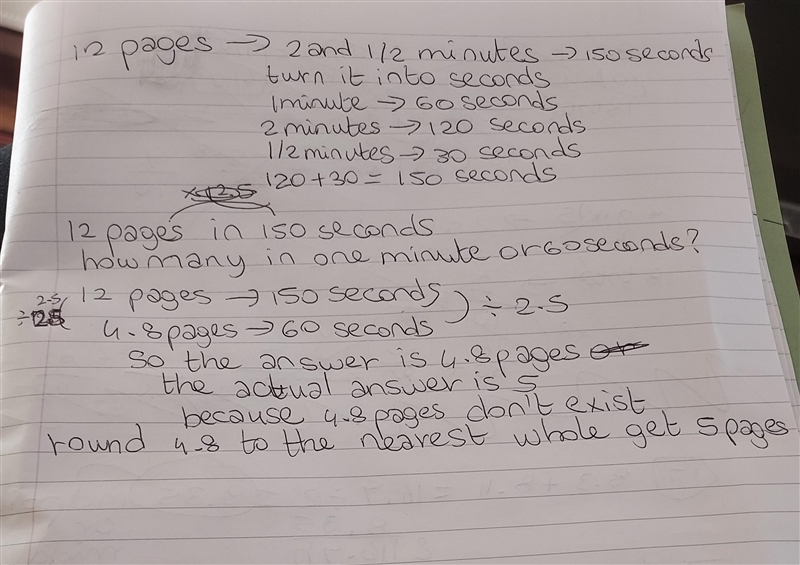 12 pages → 2 and 1/2 minutes → 150 seconds
turn it into seconds
1 minute → 60 seconds
2 minutes → 120 seconds
1/2 minutes → 30 seconds
120 + 30 = 150 seconds
12 pages in 150 seconds
how many in one minute or 60 seconds?
÷ 2.5 12 pages → 150 seconds ÷ 2.5
4.8 pages → 60 seconds
so the answer is 4.8 pages
the actual answer is 5
because 4.8 pages don't exist
round 4.8 to the nearest whole get 5 pages